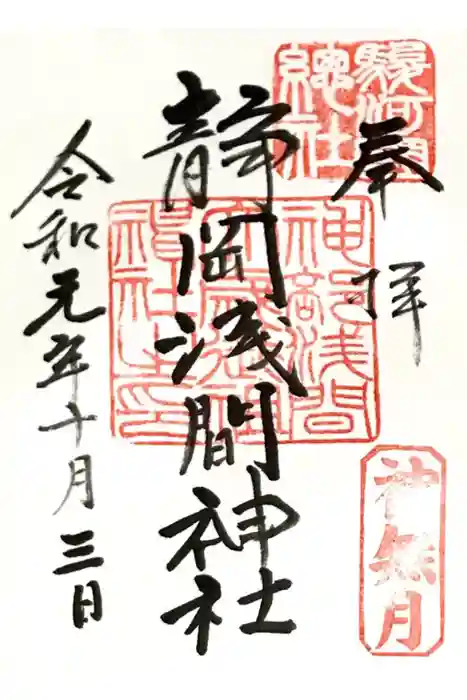 奉拝
駿河國總社
静岡浅間神社
神部浅間
令和元年十月三日
神無月